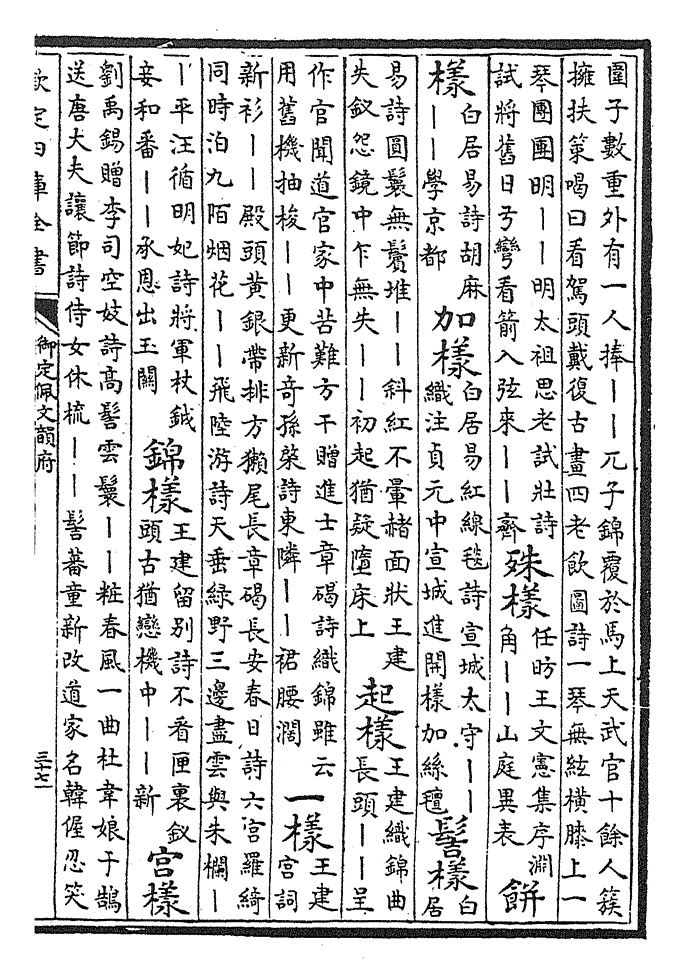 圍子數重外有一人捧丨丨兀子錦覆於馬上天武官十餘人簇
擁扶策喝曰看駕頭戴復古畫四老飲圖詩一琴無絃橫膝上一
琴團團明丨丨明太祖思老試壯詩
試將舊日弓彎看箭入弦來丨丨齊
殊樣
任昉王文憲集序淵
角丨丨山庭異表
餅
樣
白居易詩胡麻
丨丨學京都
加樣
白居易紅線毯詩宣城太守丨丨
織注貞元中宣城進開樣加絲毯
髻樣
白
居
易詩圓鬟無鬢堆丨丨斜紅不暈赭面狀王建
失釵怨鏡中乍無失丨丨初起猶疑墮床上
起樣
王建織錦曲
長頭丨丨呈
作官聞道官家中苦難方干贈進士章碣詩織錦雖云
用舊機抽梭丨丨更新奇孫棨詩東隣丨丨裙腰濶
一樣
王建
宮詞
新衫丨丨殿頭黃銀帶排方獺尾長章碣長安春日詩六宮羅綺
同時泊九陌烟花丨丨飛陸游詩天垂綠野三邊盡雲與朱欄丨
丨平汪循明妃詩將軍杖鉞
妾和番丨丨承恩出玉關
錦樣
王建留別詩不看匣裏釵
頭古猶戀機中丨丨新
宮樣
劉禹錫贈李司空妓詩高髻雲鬟丨丨粧春風一曲杜韋娘于鵠
送唐大夫讓節詩侍女休梳丨丨髻蕃童新改道家名韓偓忍笑
欽定四庫全書
御定佩文韻府
三十七